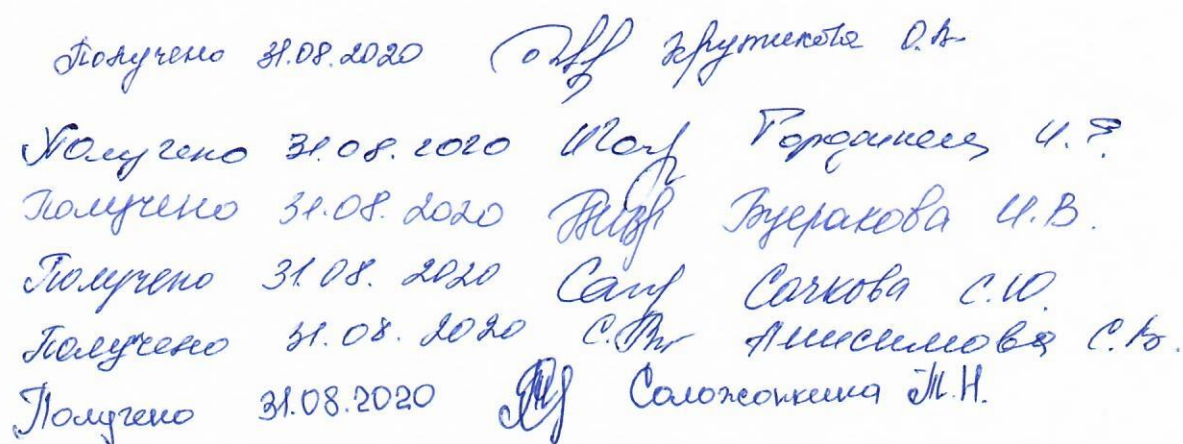 Получено 31.08.2020 Крутикова О.А.
Получено 31.08.2020 И.
Получено 31.08.2020 Буеракова И.В.
Получено 31.08.2020 Сачкова С.Ю.
Получено 31.08.2020 Анисимова С.В.
Получено 31.08.2020 Соложонкина М.Н.